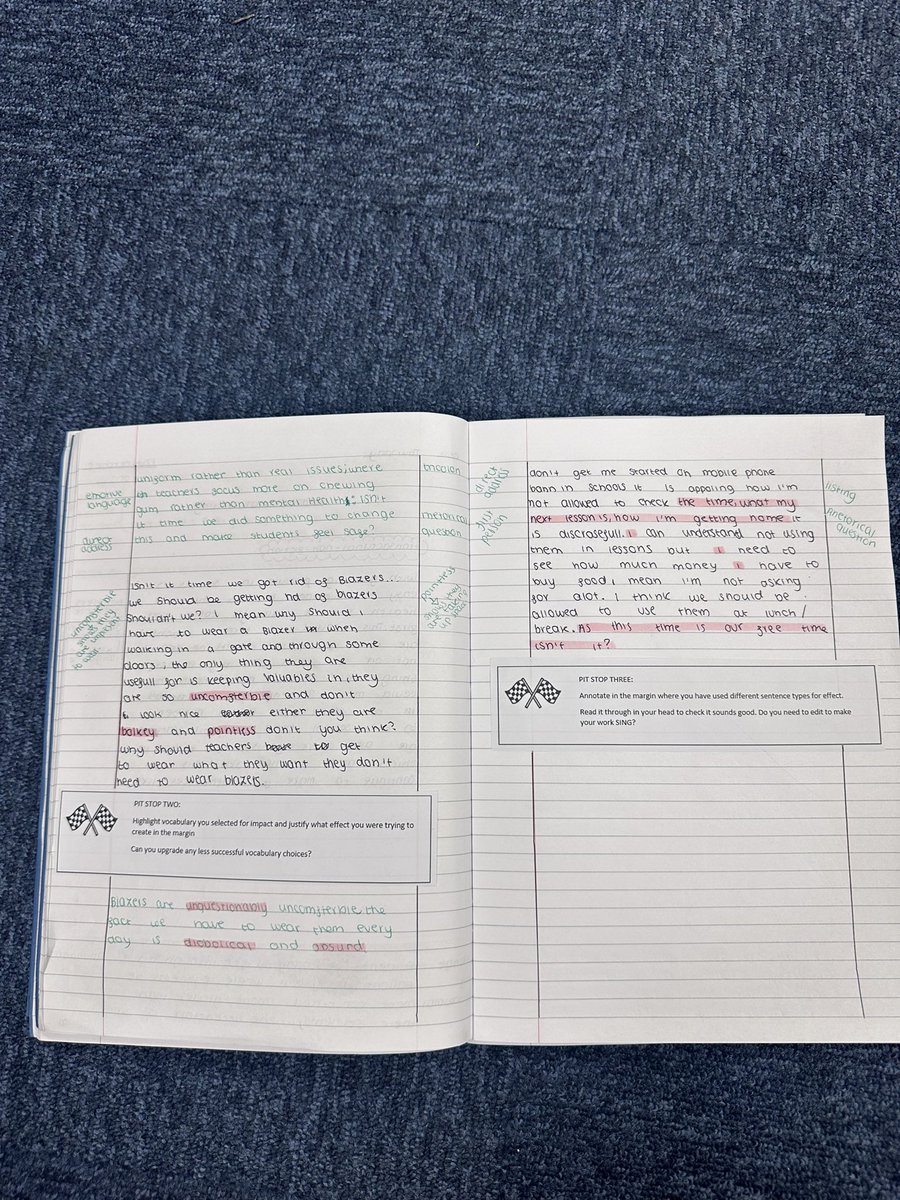 uniform rather than real issues; where
teachers focus more on chewing
gum rather than mental health: isn't
it time we did something to change
this and make students feel safe?
emotive
language
direct
address
tricolon
rhetorical
question
isn't it time we got rid of Blazers...
we should be getting rid of blazers
shouldn't we? I mean why should I
have to wear a Blazer when
walking in a gate and through some
doors, the only thing they are
usefull for is keeping valuables in, they
are so uncomfterble and don't
look nice either they are
bolkey and pointless don't you think?
why should teachers get
to wear what they want they don't
need to wear blazers.
uncomfterble
pointless
PIT STOP TWO:
Highlight vocabulary you selected for impact and justify what effect you were trying to
create in the margin
Can you upgrade any less successful vocabulary choices?
Blazers are unquestionably uncomfterble the
fact we have to wear them every
day is diobolical and absurd
direct
address
first
person
don't get me started on mobile phone
bann in schools it is appaling how i'm
not allowed to check the time, what my
next lesson is, how i'm getting home it
is discrosefull. I can understand not using
them in lessons but I need to
see how much money I have to
buy food, i mean i'm not asking
for alot. I think we should be
allowed to use them at lunch/
break. As this time is our free time
isn't it?
listing
rhetorical
question
PIT STOP THREE:
Annotate in the margin where you have used different sentence types for effect.
Read it through in your head to check it sounds good. Do you need to edit to make
your work SING?